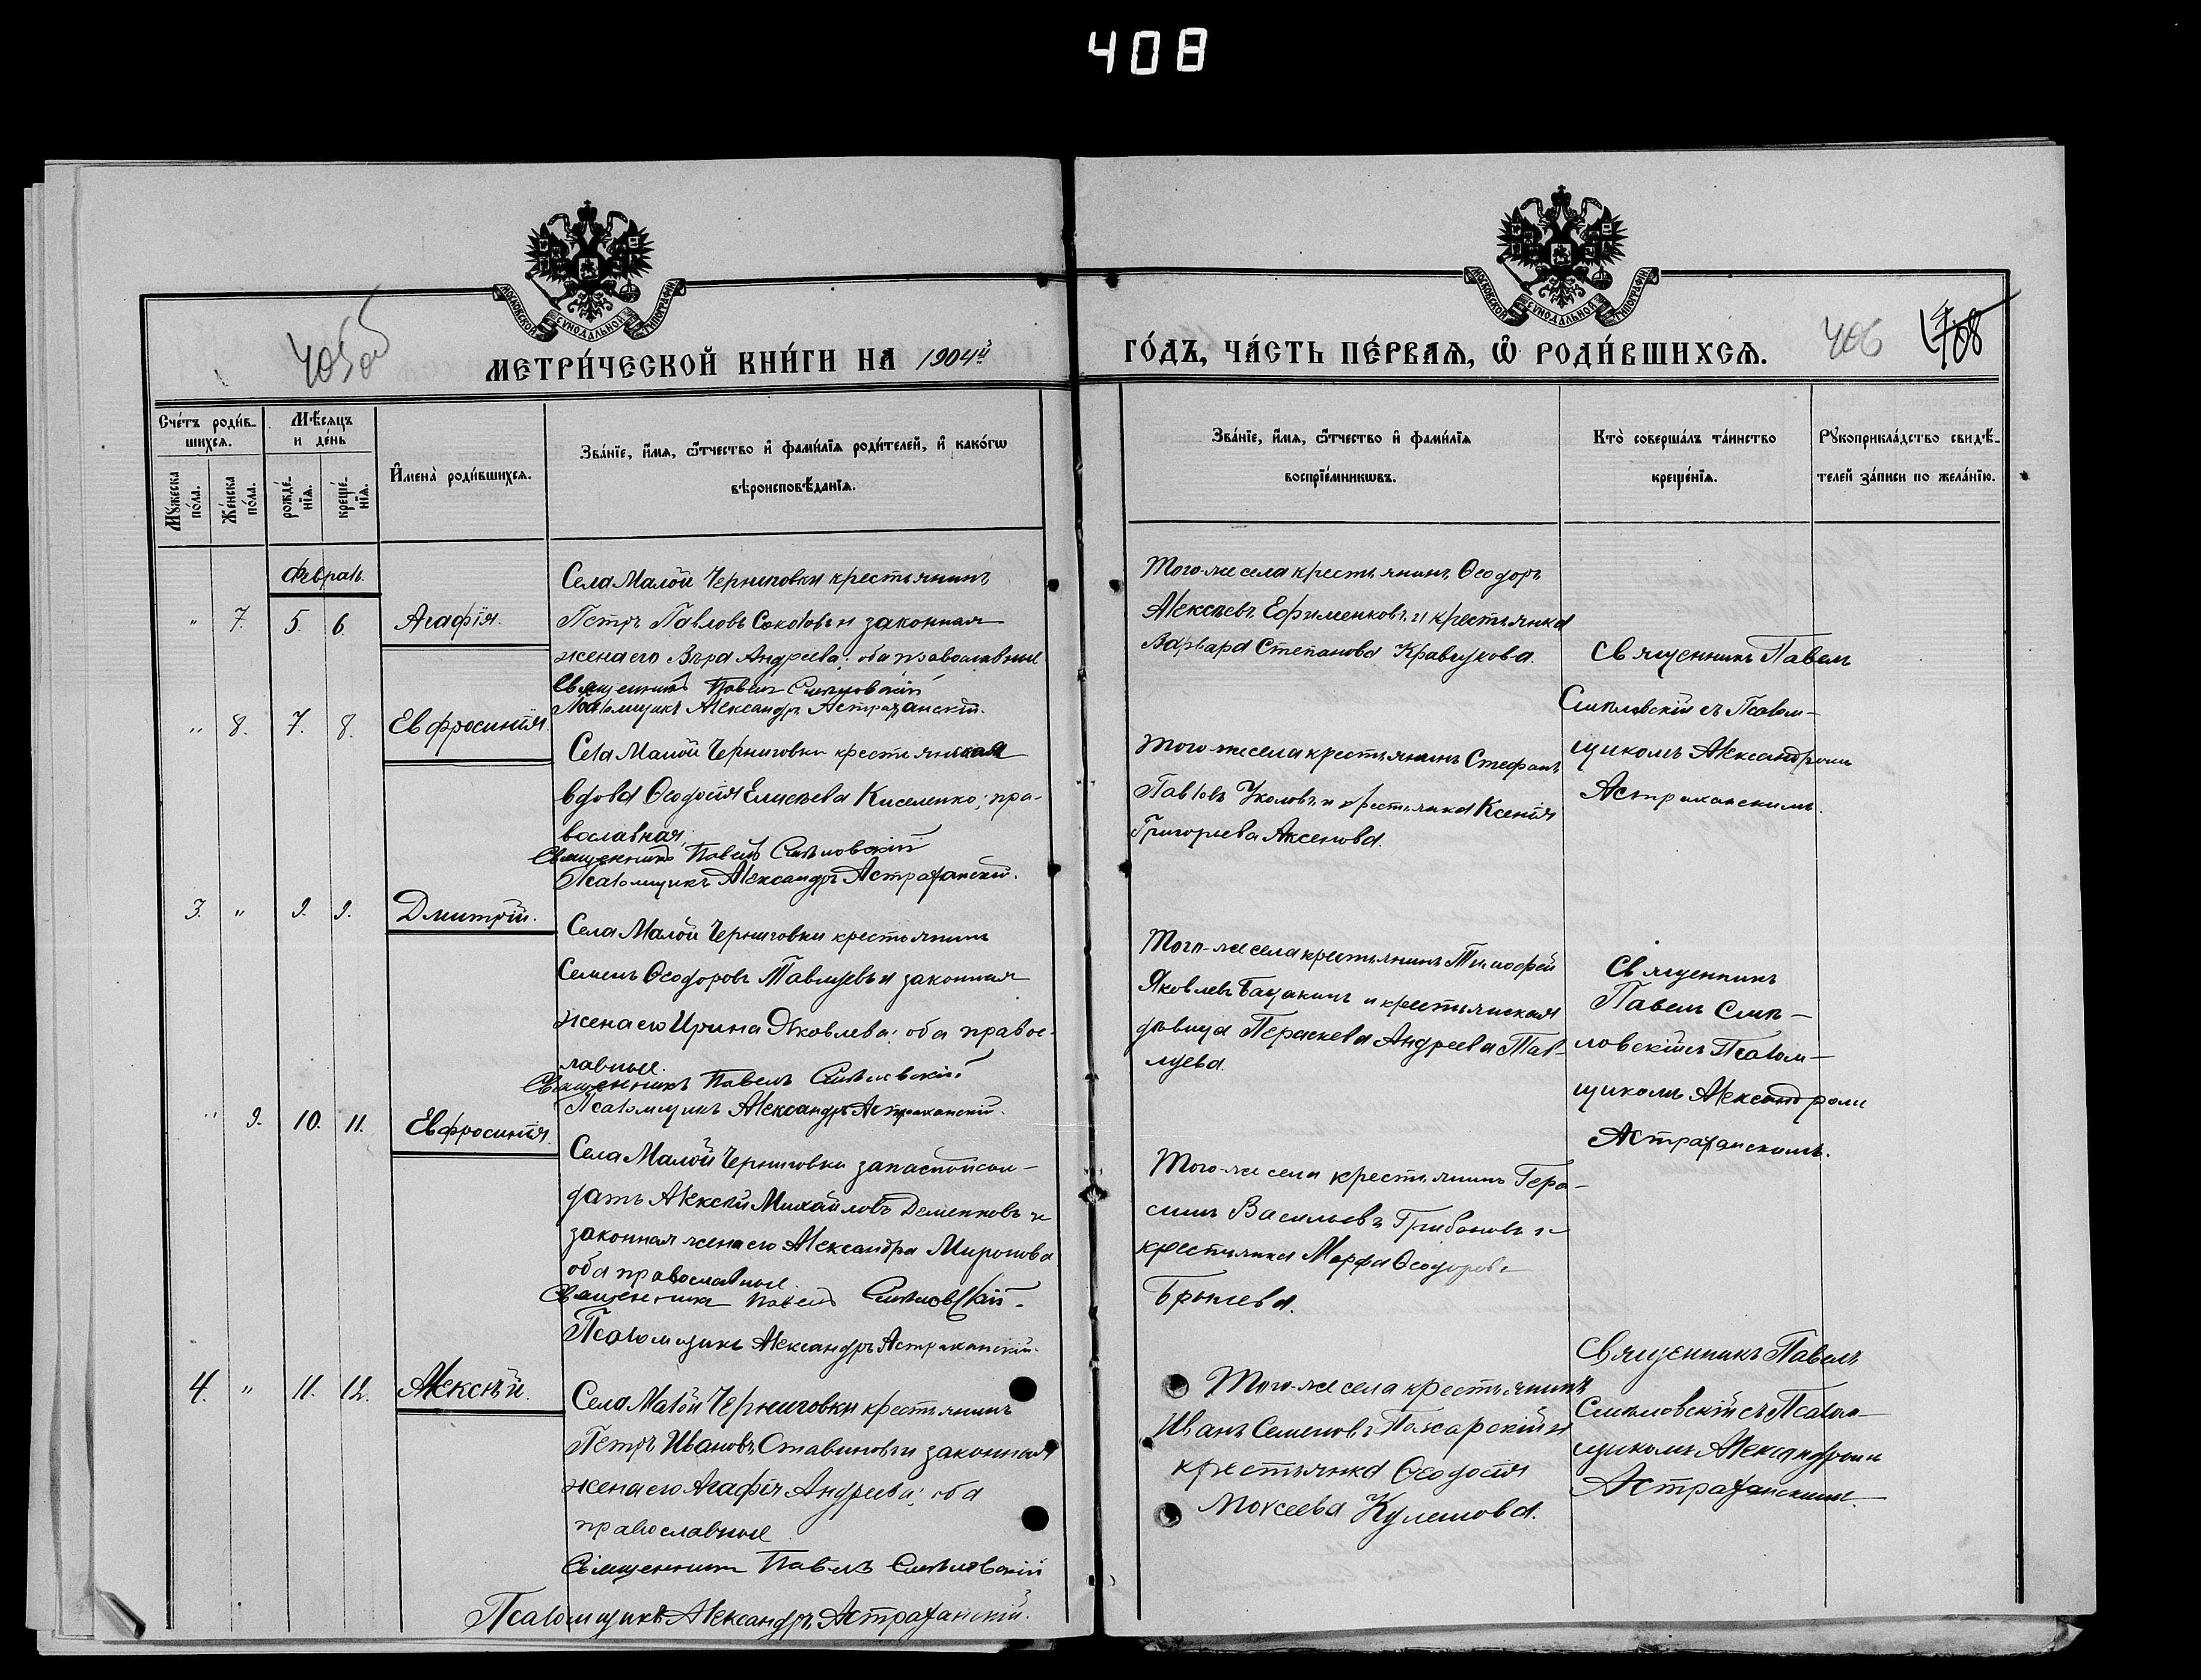 408
МОСКОВСКОЙ СУНОДАЛЬНОЙ ТИПОГРАФІИ
МОСКОВСКОЙ СУНОДАЛЬНОЙ ТИПОГРАФІИ
405об
406 408
МЕТРИ́ЧЕСКОЙ КНИ́ГИ НА 1904й
ГО́ДЪ, ЧА́СТЬ ПЕ́РВАѦ, Ѡ҆ РОДИ́ВШИХСѦ.
Сче́тъ роди́в-
шихсѧ.
Мꙋ́жеска по́ла.
Же́нска по́ла.
Мѣ́сѧцъ
и де́нь
рожде́-нїѧ.
креще́-нїѧ.
И҆мена̀ роди́вшихсѧ.
Зва́нїе, и҆́мѧ, ѻ҆́тчество и҆ фами́лїѧ роди́телей, и҆ како́гѡ
вѣроисповѣ́данїѧ.
Зва́нїе, и҆́мѧ, ѻ҆́тчество и҆ фами́лїѧ
воспрїе́мникѡвъ.
Кто̀ соверша́лъ та́инство
креще́нїѧ.
Рꙋкоприкла́дство свидѣ́-
телей за́писи по жела́нїю.
Феврал.
" 7. 5. 6. Агафія.
Села Малой Черниговки крестьянинъ
Петръ Павловъ Соколовъ и законная
жена его Вѣра Андреева; оба православные
Священникъ Павелъ Смѣловскій
Псаломщикъ Александръ Астраханскій.
Того-же села крестьянинъ Ѳеодоръ
Алексѣевъ Ефименковъ и крестьянка
Варвара Степанова Кравцукова.
Священникъ Павелъ
Смѣловскій съ Псалом-
щикомъ Александромъ
Астраханскимъ.
" 8. 7. 8. Евфросинія.
Села Малой Черниговки крестьянская
вдова Ѳеодосія Елисѣева Киселенко; пра-
вославная;
Священникъ Павелъ Смѣловскій
Псаломщикъ Александръ Астраханскій.
Того-же села крестьянинъ Стефанъ
Павловъ Уколовъ и крестьянка Ксенія
Григорьева Аксенова.
3. " 9. 9. Дмитрій.
Села Малой Черниговки крестьянинъ
Семенъ Ѳеодоровъ Павлуевъ и законная
жена его Ирина Яковлева; оба правос-
лавные.
Священникъ Павелъ Смѣловскій
Псаломщикъ Александръ Астраханскій.
Того-же села крестьянинъ Тимофей
Яковлевъ и крестьянская
дѣвица Параскева Андреева Пав-
луева.
Священникъ
Павелъ Смѣ-
ловскій съ Псалом-
щикомъ Александромъ
Астраханскимъ.
" 9. 10. 11. Евфросинія.
Села Малой Черниговки запасной сол-
датъ Алексѣй Михайловъ Деменковъ и
законная жена его Александра Миронова
оба православные.
Священникъ Павелъ Смѣловскій.
Псаломщикъ Александръ Астраханскій.
Того-же села крестьянинъ Гера-
симъ Васильевъ Грибановъ и
крестьянка Марфа Ѳеодорова
Брынева.
4. " 11. 12. Алексѣй.
Села Малой Черниговки крестьянинъ
Петръ Ивановъ Ставиновъ и законная
жена его Агафія Андреева; оба
православные
Священникъ Павелъ Смѣловскій
Псаломщикъ Александръ Астраханскій.
Того-же села крестьянинъ
Иванъ Семеновъ Пожарскій и
крестьянка Ѳеодосія
Моисеева Кулешова.
Священникъ Павелъ
Смѣловскій съ Псалом-
щикомъ Александромъ
Астраханскимъ.